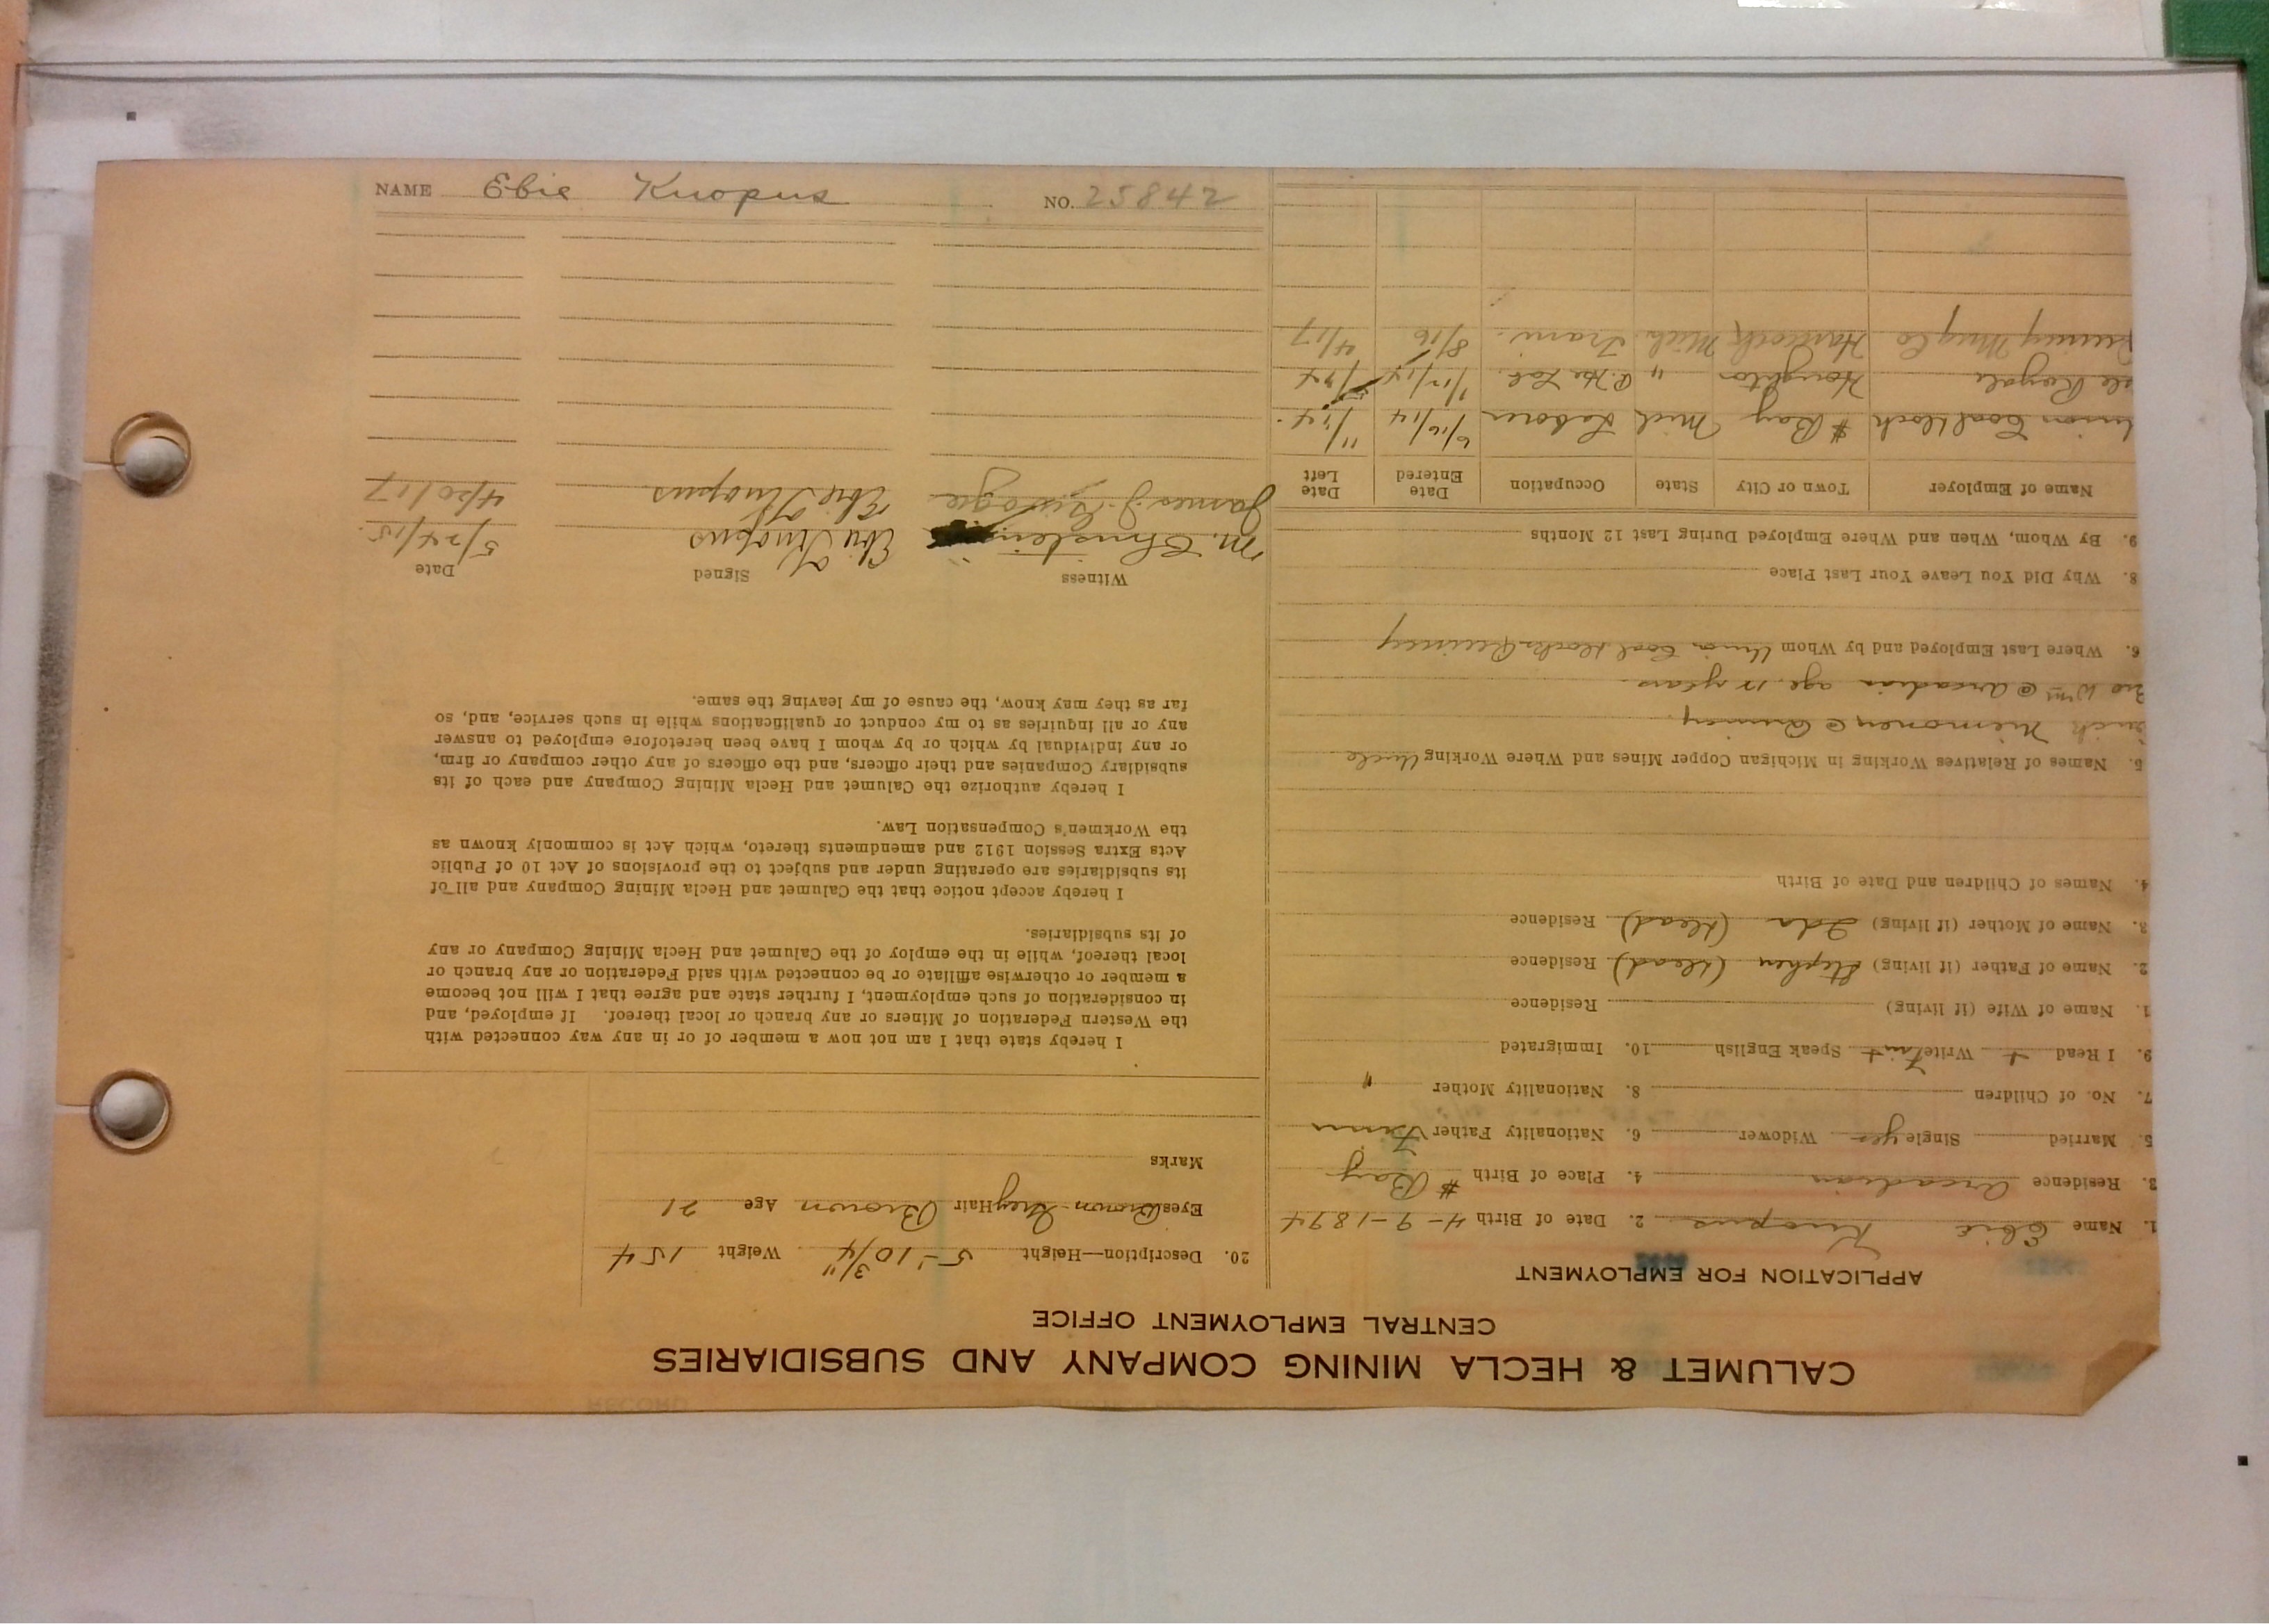 CALUMET & HECLA MINING COMPANY AND SUBSIDIARIES
CENTRAL EMPLOYMENT OFFICE
APPLICATION FOR EMPLOYMENT
1. Name Ebie Knopus 2. Date of Birth 4-9-1894
3. Residence Arcadian 4. Place of Birth # Bay
5. Married Single yes Widower 6. Nationality Father Finn
7. No. of Children 8. Nationality Mother "
9. I Read + Write Speak English 10. Immigrated
1. Name of Wife (if living) Residence
2. Name of Father (if living) Stephen (dead) Residence
3. Name of Mother (if living) Ida (dead) Residence
4. Names of Children and Date of Birth
5. Names of Relatives Working in Michigan Copper Mines and Where Working Uncle
Niemonen @ Quincy.
Bro Wm @ Arcadian age 17 years.
6. Where Last Employed and by Whom Union Coal Docks Quincy
8. Why Did You Leave Your Last Place
9. By Whom, When and Where Employed During Last 12 Months
Name of Employer Town or City State Occupation Date Entered Date Left
Union Coal Dock # Bay Mich Laborer 6/16/14 11/14.
Isle Royale Houghton "
Quincy Mng Co Hancock Mich. Tram. 8/16 4/17
20. Description—Height 5-10 3/4" Weight 154
Eyes Brown Grey Hair Brown Age 21
Marks
I hereby state that I am not now a member of or in any way connected with
the Western Federation of Miners or any branch or local thereof. If employed, and
in consideration of such employment, I further state and agree that I will not become
a member or otherwise affiliate or be connected with said Federation or any branch or
local thereof, while in the employ of the Calumet and Hecla Mining Company or any
of its subsidiaries.
I hereby accept notice that the Calumet and Hecla Mining Company and all of
its subsidiaries are operating under and subject to the provisions of Act 10 of Public
Acts Extra Session 1912 and amendments thereto, which Act is commonly known as
the Workmen's Compensation Law.
I hereby authorize the Calumet and Hecla Mining Company and each of its
subsidiary Companies and their officers, and the officers of any other company or firm,
or any individual by which or by whom I have been heretofore employed to answer
any or all inquiries as to my conduct or qualifications while in such service, and, so
far as they may know, the cause of my leaving the same.
Witness Signed Date
M. Ebie Knopus 5/24/15.
James J. Ebie Knopus 4/20/17
NAME Ebie Knopus NO. 25842
RECORD